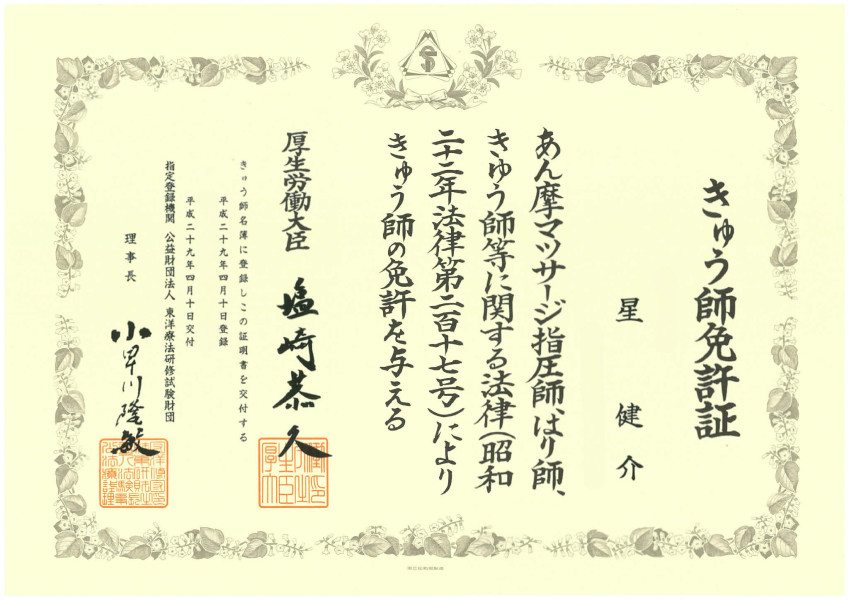 きゅう師免許証
星健介
あん摩マツサージ指圧師、はり師、
きゆう師等に関する法律(昭和
二十二年法律第二百十七号)により
きゅう師の免許を与える
厚生労働大臣 塩崎恭久
きゅう師名簿に登録しこの証明書を交付する
平成二十九年四月十日登録
平成二十九年四月十日交付
指定登録機関 公益財団法人 東洋療法研修試験財団
理事長 小早川隆敏